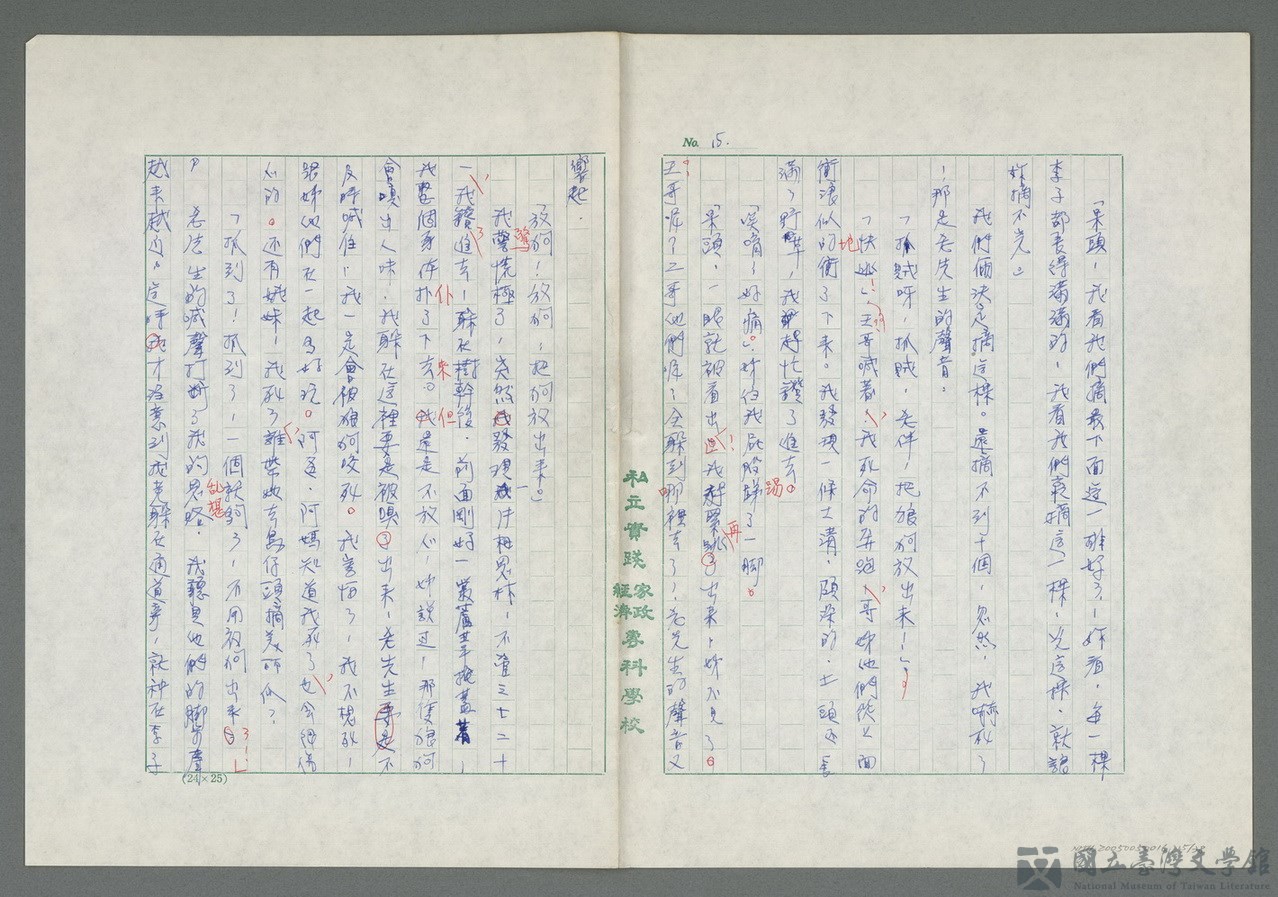 No. 15.
「呆頭，我看我們摘最下面這一排好了！你看，每一棵
李子都長得滿滿的，我看我們衹摘這一棵，光這棵，就諒
妳摘不光。」
我們傾決定摘這棵。還摘不到十個，忽然，我嚇死了
！那是老先生的聲音。
「抓賊呀，抓賊，老伴，把狼狗放出來！」
「快逃！」王哥喊著，我死命的奔跑，哥姊他們從上面
衝浪似地衝了下來。我發現一條土溝，頗深的，土頭還舍
滿了野草，我趕忙鑽了進去。
「唉唷！好痛。」妳從我屁股踢了一腳。
「呆頭，一眼就被看出！我再出來，姊不見了。
王哥呢？二哥他們呢？全躲到哪裡去了！老先生的聲音又
響起。
「放狗！放狗，把狗放出來。」
我驚慌極了，突然發現一片相思林，不管三七二十
一，我鑽進去！躲在樹幹後，前面剛好一叢蘆葦掩蓋著，
我整個身体仆了下來。但還是不放心，姊說過！那隻狼狗
會嗅出人味，我躲在這裡要是被嗅出來，老先生不
及呼喊住！我一定會被狼狗咬死。我害怕了，我不想死，
跟姊他們在一起多好玩。阿爸、阿媽知道我死了也會很傷
心的。還有娥妹，我死了誰帶她去島仔頭摘美丽瓜？
「抓到了！抓到了！一個就夠了，不用被狗出來！」
老先生的喊聲打斷了我的乱想，我聽見他們的腳步聲
越來越近，這時才注意到我竟躲在通道旁，就种在李子
(24×25)
私立實踐家政經濟專科學校
國立臺灣文學館
National Museum of Taiwan Literature